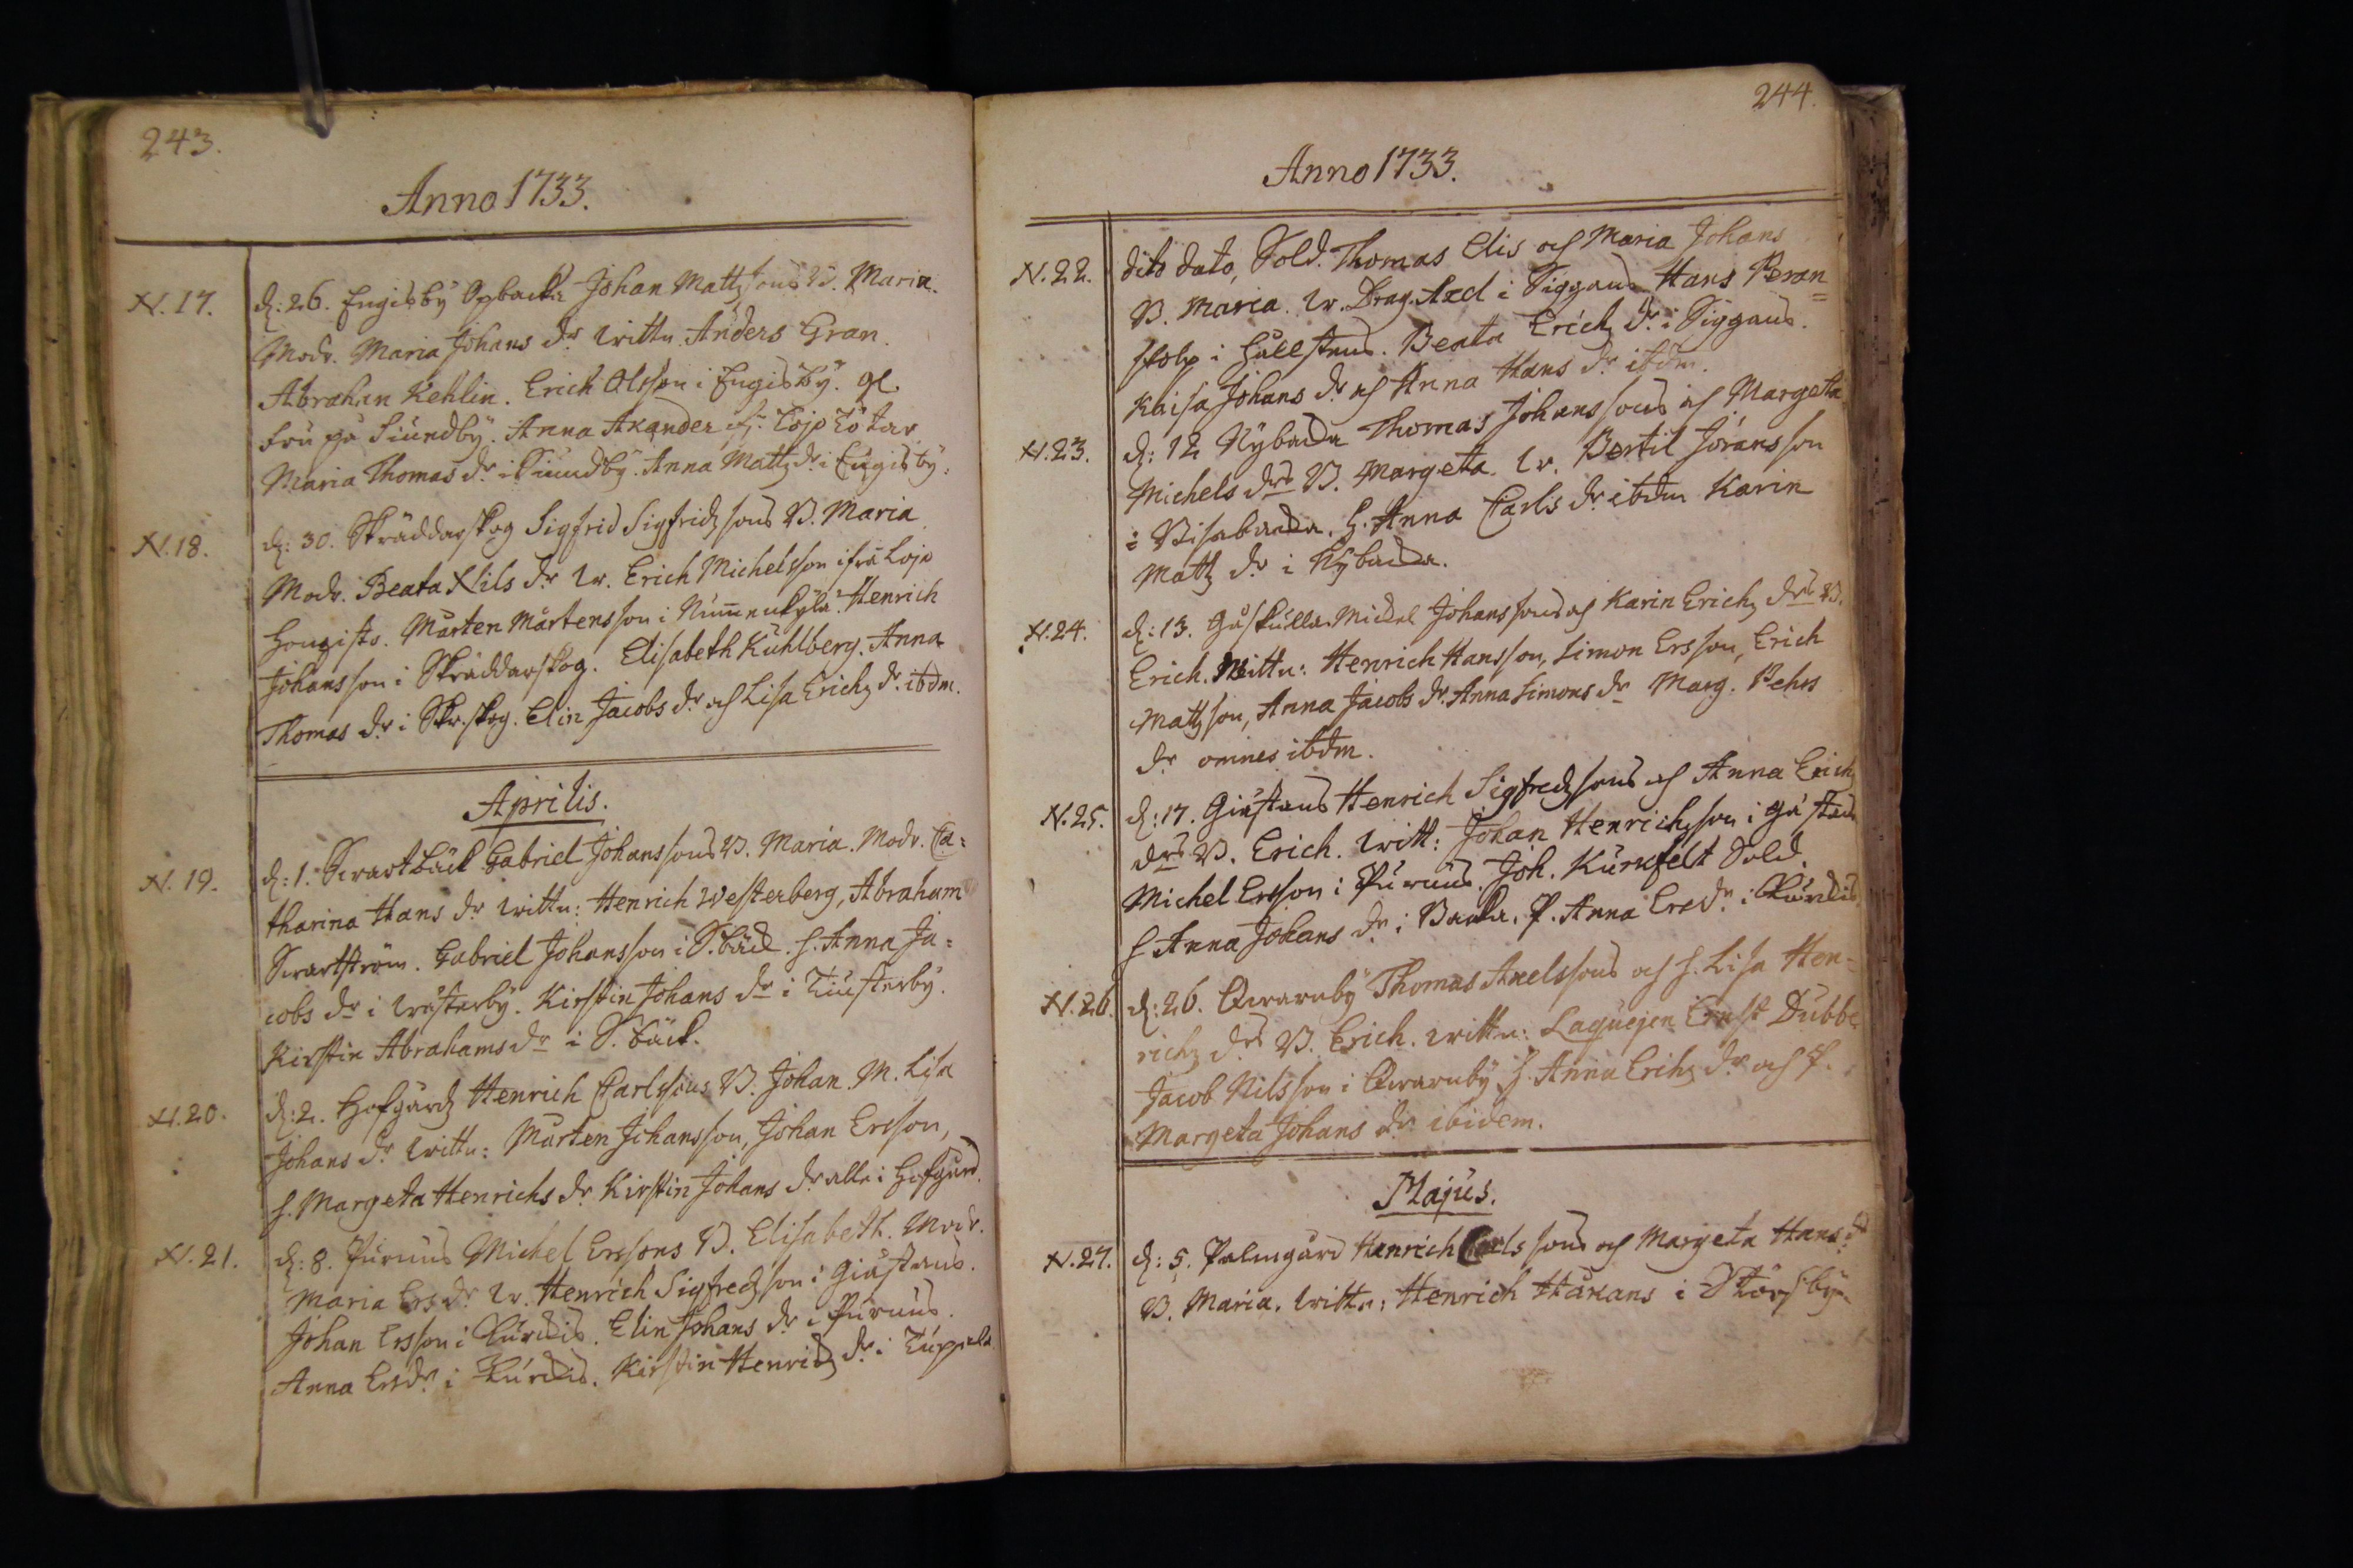 243.
Anno 1733.
N. 17. d: 26. Engisby Opbacka Johan Mattzsons B. Maria.
Modr. Maria Johans dr wittn. Anders Gran.
Abraham Kehlin. Erich Olsson i Engisby. gl.
fru på Siundby. Anna Akander
Maria Thomas dr i Siundby. Anna Mattz dr i Engisby.
N. 18. d: 30. Skräddarskog Sigfrid Sigfridz sons B. Maria
Modr. Beata Nils dr w. Erich Michelsson ifrå Lojo
Hongisto. Mårten Mårtensson i Numenkylä. Henrich
Johansson i Skräddarskog. Elisabeth Kuhlberg. Anna
Thomas dr i Skr.skog. Elin Jacobs dr och Lisa Erichz dr ibdm.
Aprilis.
N. 19. d: 1. Swartbäck Gabriel Johanssons B. Maria. Modr. Ca=
tharina Hans dr wittn: Henrich Westerberg, Abraham
Swartström. Gabriel Johansson i S.bäck. h. Anna Ja=
cobs dr i Wästerby. Kirstin Johans dr i Tiusterby.
Kirstin Abrahams dr i S. bäck.
N. 20. d: 2. Hofgård Henrich Carlssons B. Johan. M. Lisa
Johans dr wittn: Mårten Johansson, Johan Ersson,
h. Margeta Henrichs dr Kirstin Johans dr alla i Hofgård.
N. 21. d: 8. Purnus Michel Erssons B. Elisabeth. Modr.
Maria Ers dr w. Henrich Sigfredzson i Giästans.
Johan Ersson i Purkis. Elin Johans dr i Purnus.
Anna Ers dr i Purkis. Kirstin Henrichz dr i Tuppala
244.
Anno 1733.
N. 22. dito dato, Sold. Thomas Elis och Maria Johans
B. Maria. w. Drag. Axel i Siggans Hans Peran=
stolp i Hällstens. Beata Erichz dr i Siggans.
Kaisa Johans dr och Anna Hans dr ibdm.
N. 23. d: 12 Nybacka Thomas Johanssons och Margeta
Michels drs B. Margeta. w. Bertil Jöransson
i Bisabacka. h. Anna Carls dr ibdm Karin
Mattz dr i Nybacka.
N. 24. d: 13. Gåskulla Mickel Johanssons och Karin Erichz drs B.
Erich. Wittn: Henrich Hansson, Simon Ersson, Erich
Mattzson, Anna Jacobs dr. Anna Simons dr Marg. Pehrs
dr omnes ibdm.
N. 25. d: 17. Giästans Henrich Sigfredzsons och Anna Erichz
drs B. Erich. Witt: Johan Henrichzson i Giästans
Michel Ersson i Purnus. Joh. Kurkfelt Sold.
h Anna Johans dr i Backa. P. Anna Ers dr i Purkis.
N. 26. d: 26. Qwarnby Thomas Axelssons och h. Lisa Hen=
richz drs B. Erich. wittn: Laquejen Ernst Dubbe
Jacob Nilsson i Qwarnby h. Anna Erichz dr och P.
Margeta Johans dr ibidem.
Majus.
N. 27. d: 5. Palmgård Henrich Carlssons och Margeta Hans dr
B. Maria. Wittn: Henrich Håkans i Störsby.